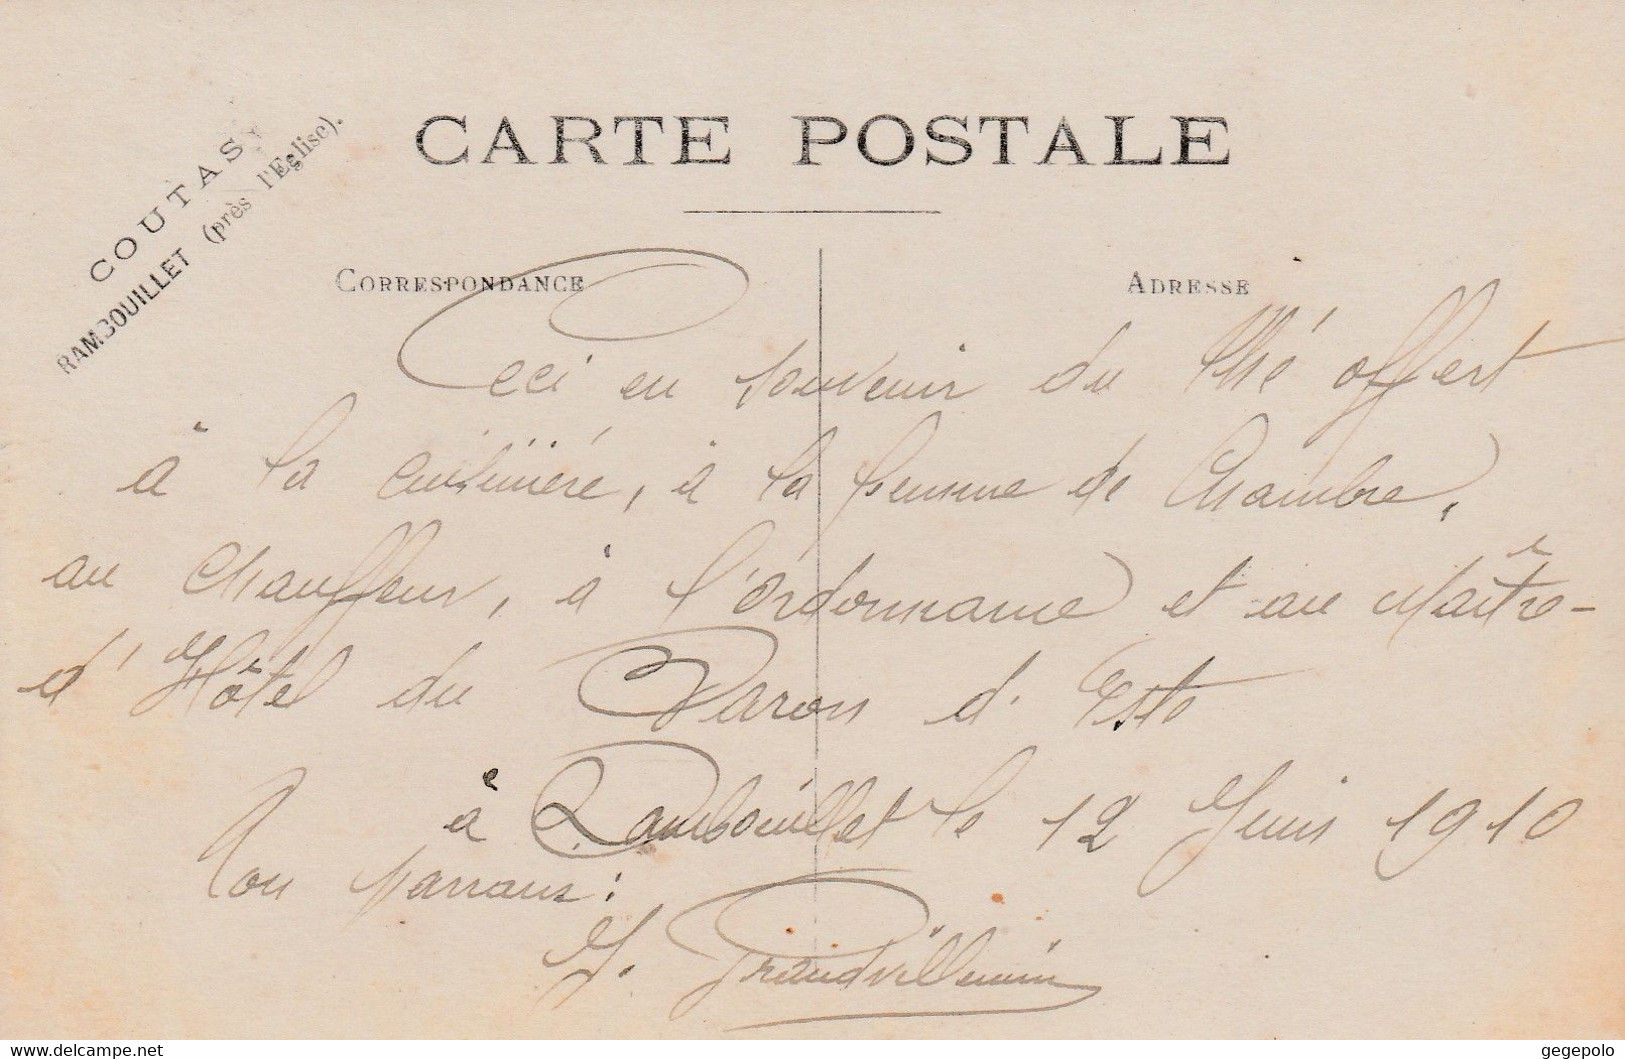 CARTE POSTALE
COUTAS
RAMBOUILLET (près l'Eglise).
CORRESPONDANCE
ADRESSE
Ceci en souvenir du thé offert
à la cuisinière, à la femme de Chambre,
au Chauffeur, à l'ordonnance et au Maître-
d'Hôtel du Baron d'Este
à Rambouillet le 12 Juin 1910
Ton parrain :
Grandvillemin
delcampe.net
gegepolo